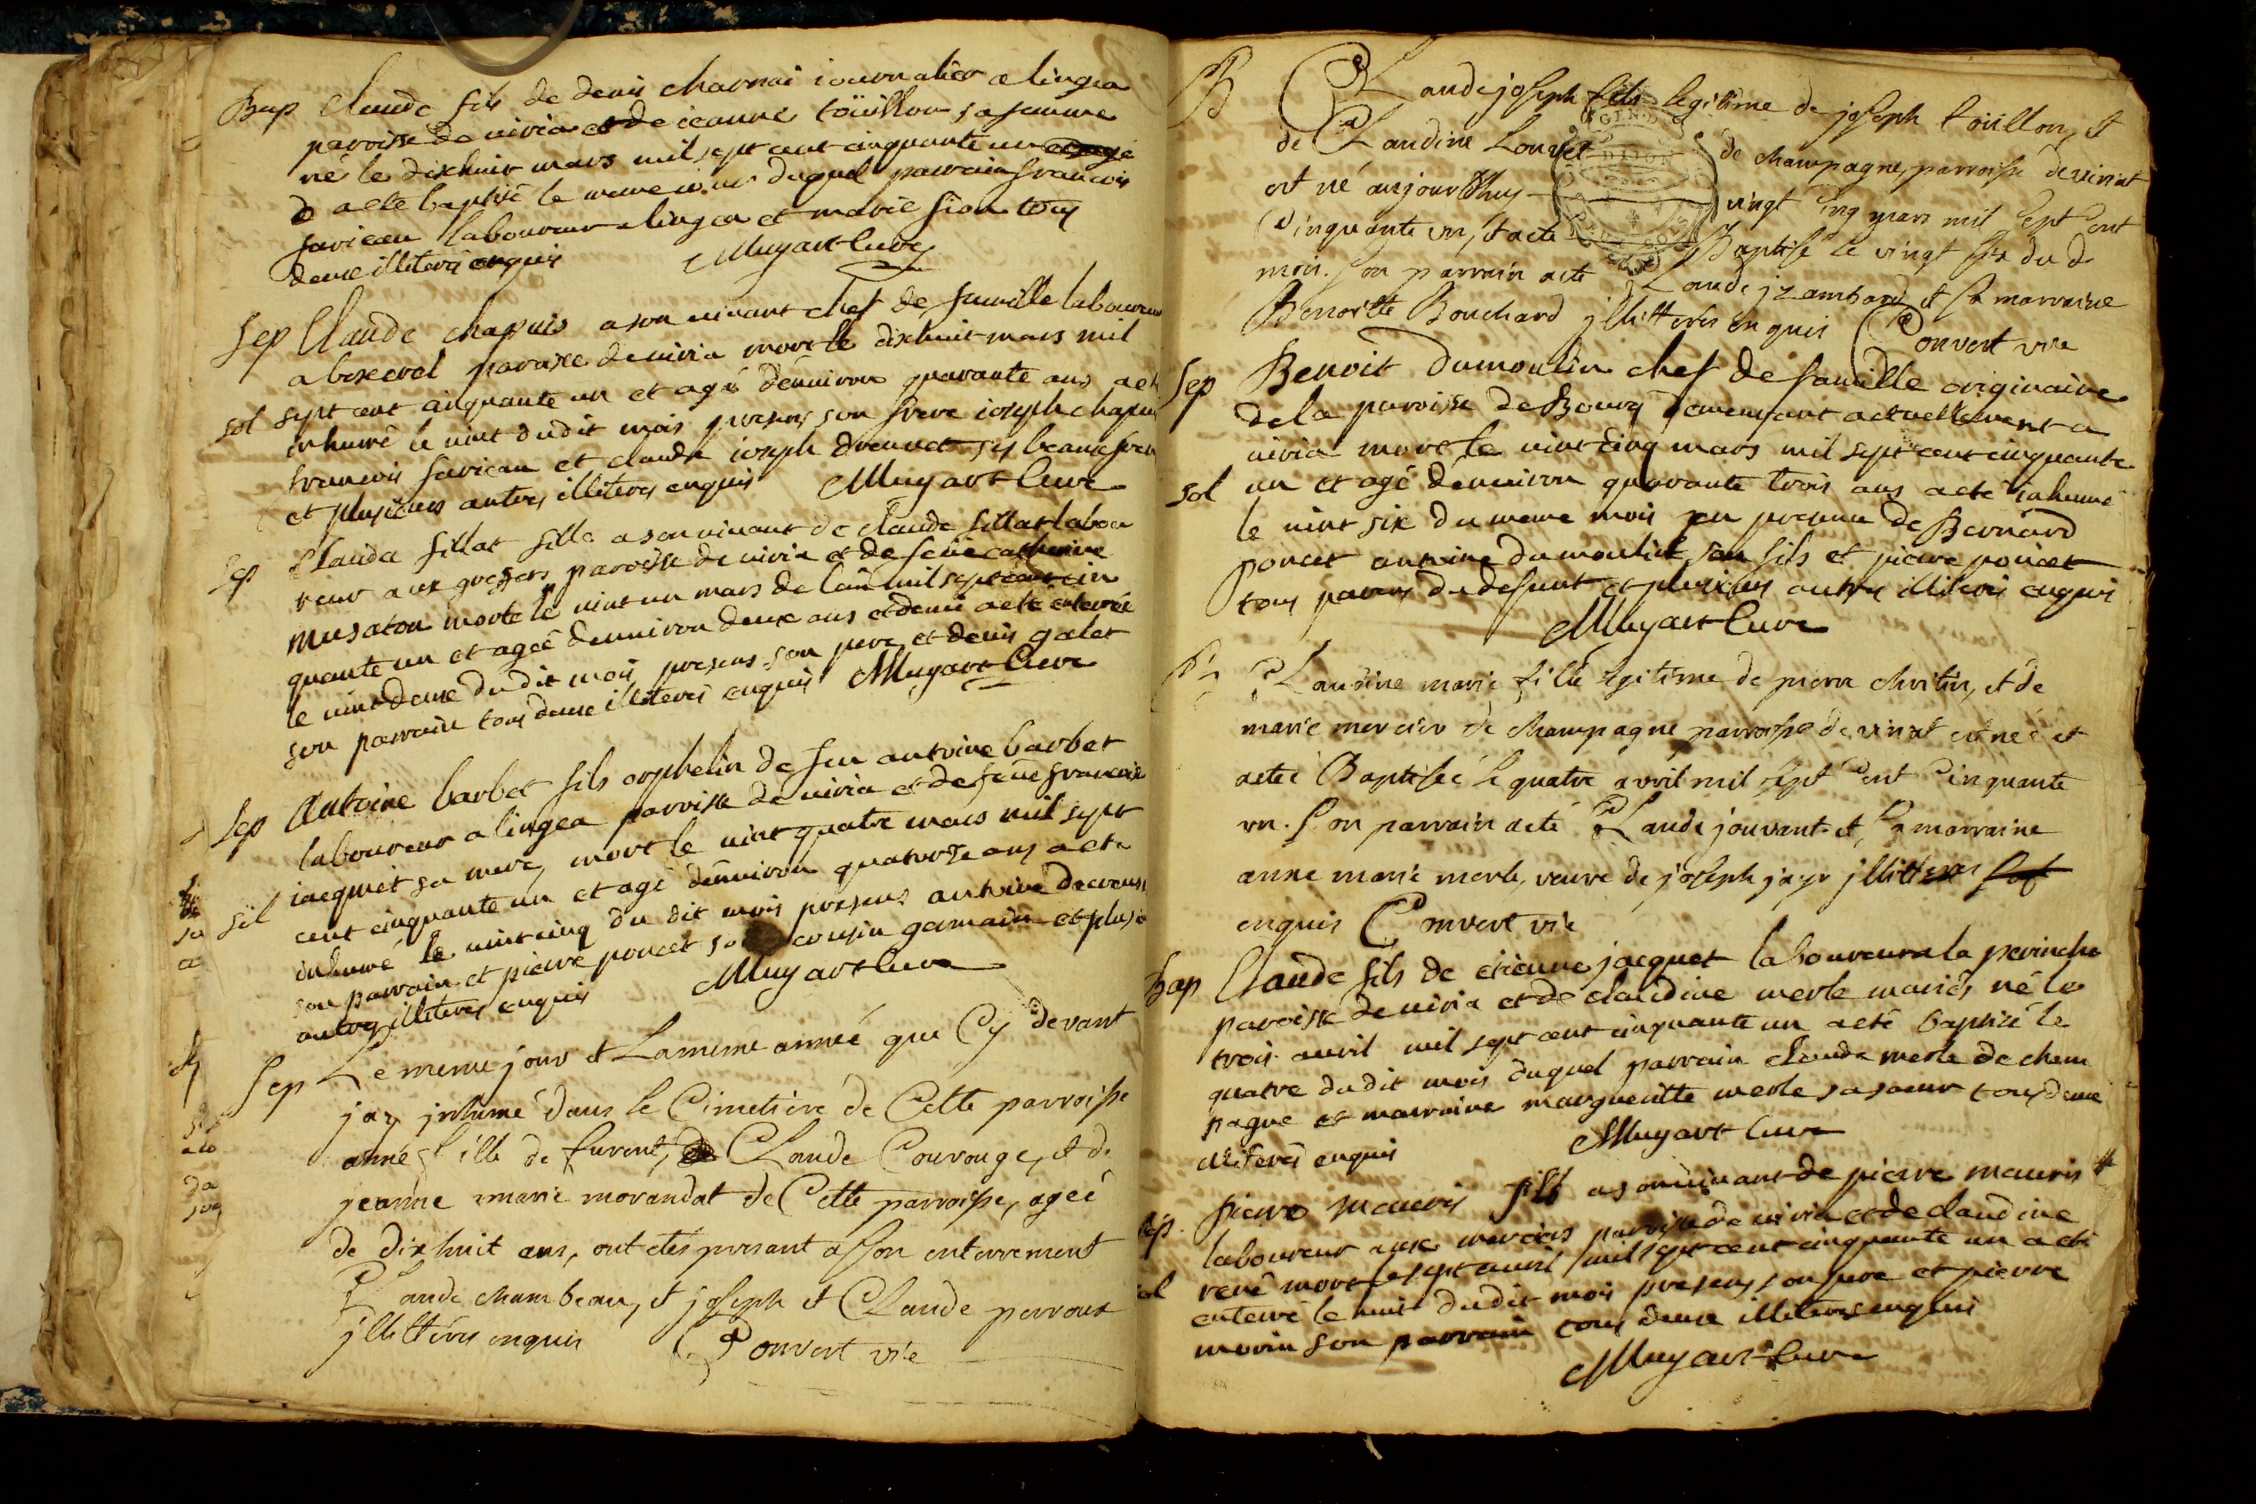 Bap Claude fils de denis charnai iournalier a lingea
paroisse de viria et de ieanne toüillon sa femme
né le dixhuit mars mil sept cent cinquante un
a eté baptisé le meme iour duquel parrain francois
favicau laboureur a lingea et marie sion tous
deux illiterés enquis Muyart Curé
Sep Claude chapuis a son vivant chef de famille laboureur
a boxerel paroisse de viria mort le dixhuit mars mil
sol sept cent cinquante un et agé d'environ quarante ans a eté
inhumé le vint dudit mois presens son frere ioseph chapuis
francois favicau et claude ioseph drevuet ses beaux freres
et plusieurs autres illiteres enquis Muyart Curé
Sep Claudа fillat fille a son vivant de claude fillat labou
reur aux greffets paroisse de viria et de feüe catherine
musaton morte le vint un mars de l'an mil sept cent cin
quante un et agée d'environ deux ans et demi a eté enterrée
le vint deux dudit mois presens son pere et denis galet
son parrain tous deux illiteres enquis Muyart Curé
Sep Antoine barbet fils orphelin de feu antoine barbet
laboureur a lingea paroisse de viria et de feüe francoise
iacquet sa mere, mort le vint quatre mars mil sept
sol cent cinquante un et agé d'environ quatorze ans a eté
inhumé le vint cinq du dit mois presens antoine decreuse
son parrain et pierre poncet son cousin germain et plusieurs
autres illiteres enquis Muyart Curé
Sep Le meme jour et Lameme année que Cy devant
jay jnhumé dans le Cimetière de Cette parroisse
anne fille de furent, Claude Couvouge, et de
jeanne marie morandat de Cette parroisse, agéé
de dixhuit ans, ont etés present asson enterrement
Claude chambeau, et joseph et Claude perroux
jllittérés enquis Convert vire
B Claude joseph fils legitime de joseph toüillon, et
de Claudine Louvet de champagne, parroisse de viriat
est né aujourdhuy vingt cinq mars mil sept cent
Cinquante un, et a eté Baptisé le vingt six du d
mois. son parrain a eté Claude jzambard et sa marraine
Benoitte Bouchard jllitterés enquis Convert vire
Sep Benoit Dumoulin chef de famille originaire
de la paroisse de Bourg demeurant actuellement a
viria mort le vint cinq mars mil sept cent cinquante
sol un et agé d'environ quarante trois ans a eté inhumé
le vint six du meme mois en presence de Bernard
poncet antoine dumoulin son fils et pierre poncet
tous parens du defunt et plusieurs autres illiterés enquis
Muyart Curé
B Claudine marie fille legitime de pierre chvitin, et de
marie mercier de champagne parroisse de viriat est néé et
a eté Baptiséé le quatre avril mil sept cent Cinquante
un. son parrain a eté Claude jouvant et sa marraine
anne marie merle, veuve de joseph jayr jllitterés
enquis Convert vire
Bap Claude fils de etienne jacquet laboureur a la perinche
paroisse de viria et de claudine merle mariés né le
trois avril mil sept cent cinquante un a eté baptisé le
quatre dudit mois duquel parrain claude merle de cham
pagne et marraine margueritte merle sa soeur tous deux
illiterés enquis Muyart Curé
Sep. Pierre mauris fils a son vivant de pierre mauris
laboureur aux merciers paroisse de viria et de claudine
sol rené mort le sept avril mil sept cent cinquante un a eté
enterré le huit dudit mois presens son pere et pierre
morin son parrain tous deux illiteres enquis
Muyart Curé